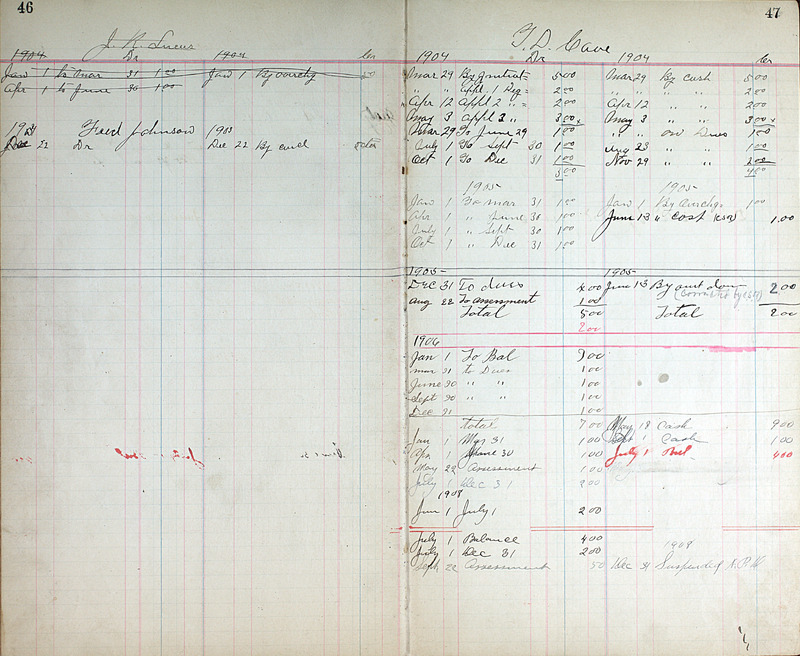 46
J. R. Lucus
1904 Dr 1904 Cr
Jan 1 to Mar 31 1 00 Jan 1 By ovrchg 50
Apr 1 to June 30 1 00
Fred Johnson 1903
Dec 22 Dr Dec 22 By card
47
T. D. Cave
1904 Dr 1904 Cr
Mar 29 By Initiat = 5 00 Mar 29 By cash 5 00
" " Appl. 1 Deg = 2 00 " " " " 2 00
Apr 12 Appl 2 " = 2 00 Apr 12 " " 2 00
May 3 Appl 3 " 3 00 x May 3 " " 3 00 x
Mar 29 To June 29 1 00 " " on Dues 1 00
July 1 To Sept 30 1 00 Aug 23 " " 1 00
Oct 1 To Dec 31 1 00 Nov 29 " " 2 00
3 00 4 00
1905 1905
Jan 1 To Mar 31 1 00 Jan 1 By ovrchg 1 00
Apr 1 " June 30 1 00 June 13 " cost 1 00
July 1 " Sept 30 1 00
Oct 1 " Dec 31 1 00
1905 1905
Dec 31 To dues 4 00 June 13 By amt 2 00
Aug 22 To assessment 1 00
Total 5 00 Total 2 00
2 00
1906
Jan 1 To Bal 3 00
Mar 31 to Dues 1 00
June 30 " " 1 00
Sept 30 " " 1 00
Dec 31 1 00
total 7 00 May 18 Cash 9 00
Jan 1 Mar 31 1 00 Sept 1 Cash 1 00
Apr 1 June 30 1 00 July 1 Bal 4 00
May 22 Assessment 1 00
July 1 Dec 31 2 00
1908
Jan 1 July 1 2 00
July 1 Balance 4 00
July 1 Dec 31 2 00 1908
Sept 22 Assessment 50 Dec 31 Suspended N.P.D.